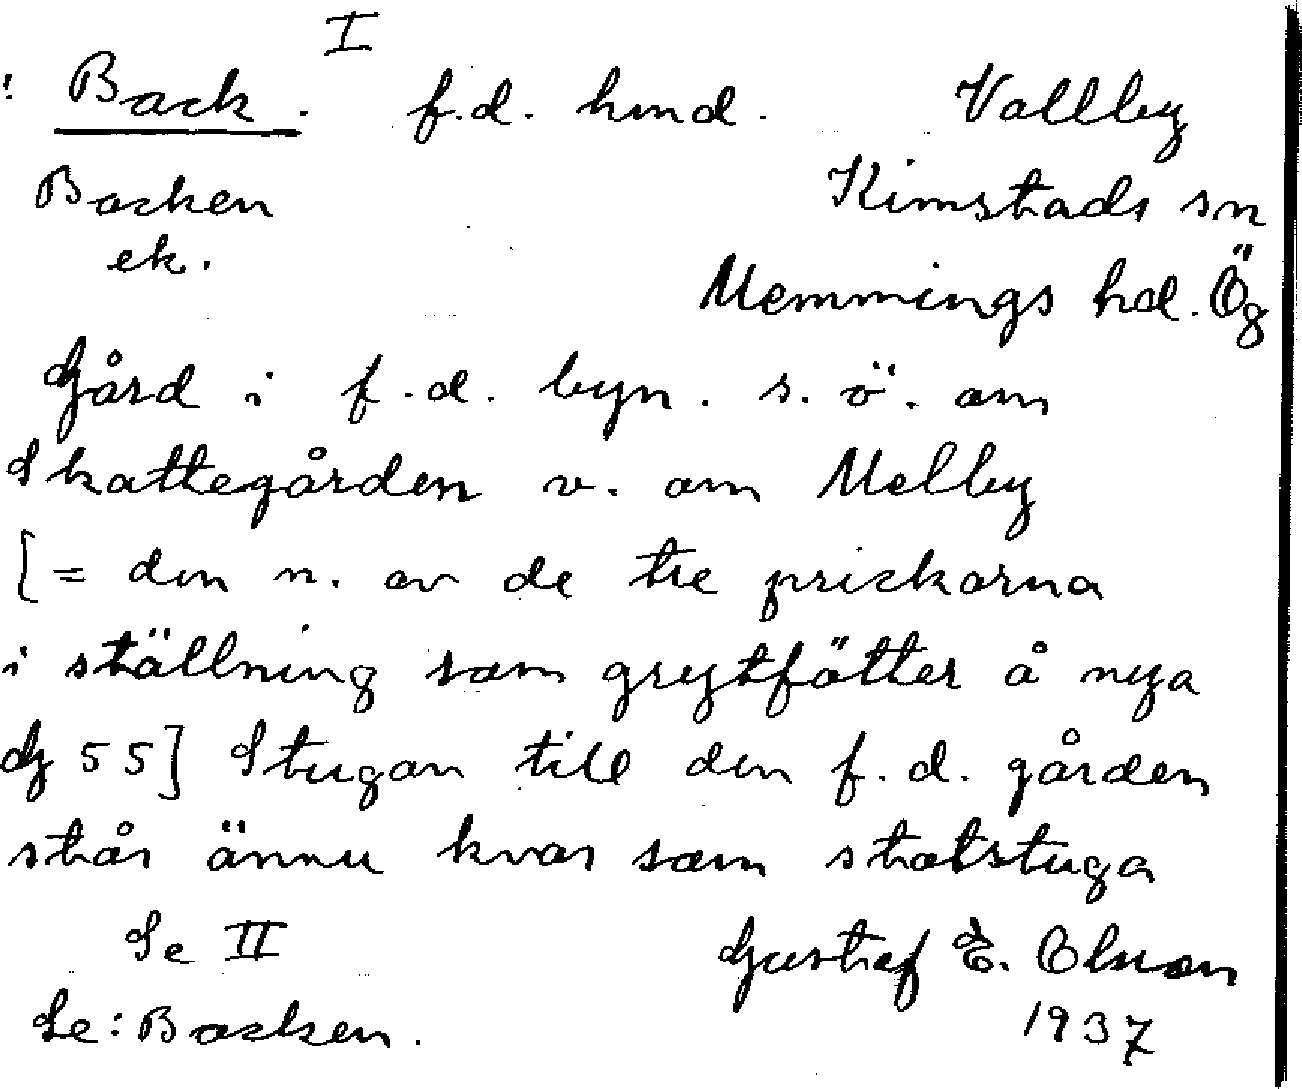 I
! Back. f.d. hmd. Vallby
Backen Kimstads sn
ek.
Memmings hd. Ög
Gård i f.d. byn. s.ö. om
Skattegården v. om Melby
[= den n. av de tre prickarna
i ställning som grytfötter å nya
dz 55] Stugan till den f.d. gården
står ännu kvar som statstuga
Se II Gustaf E. Olsson
Se: Backen. 1937